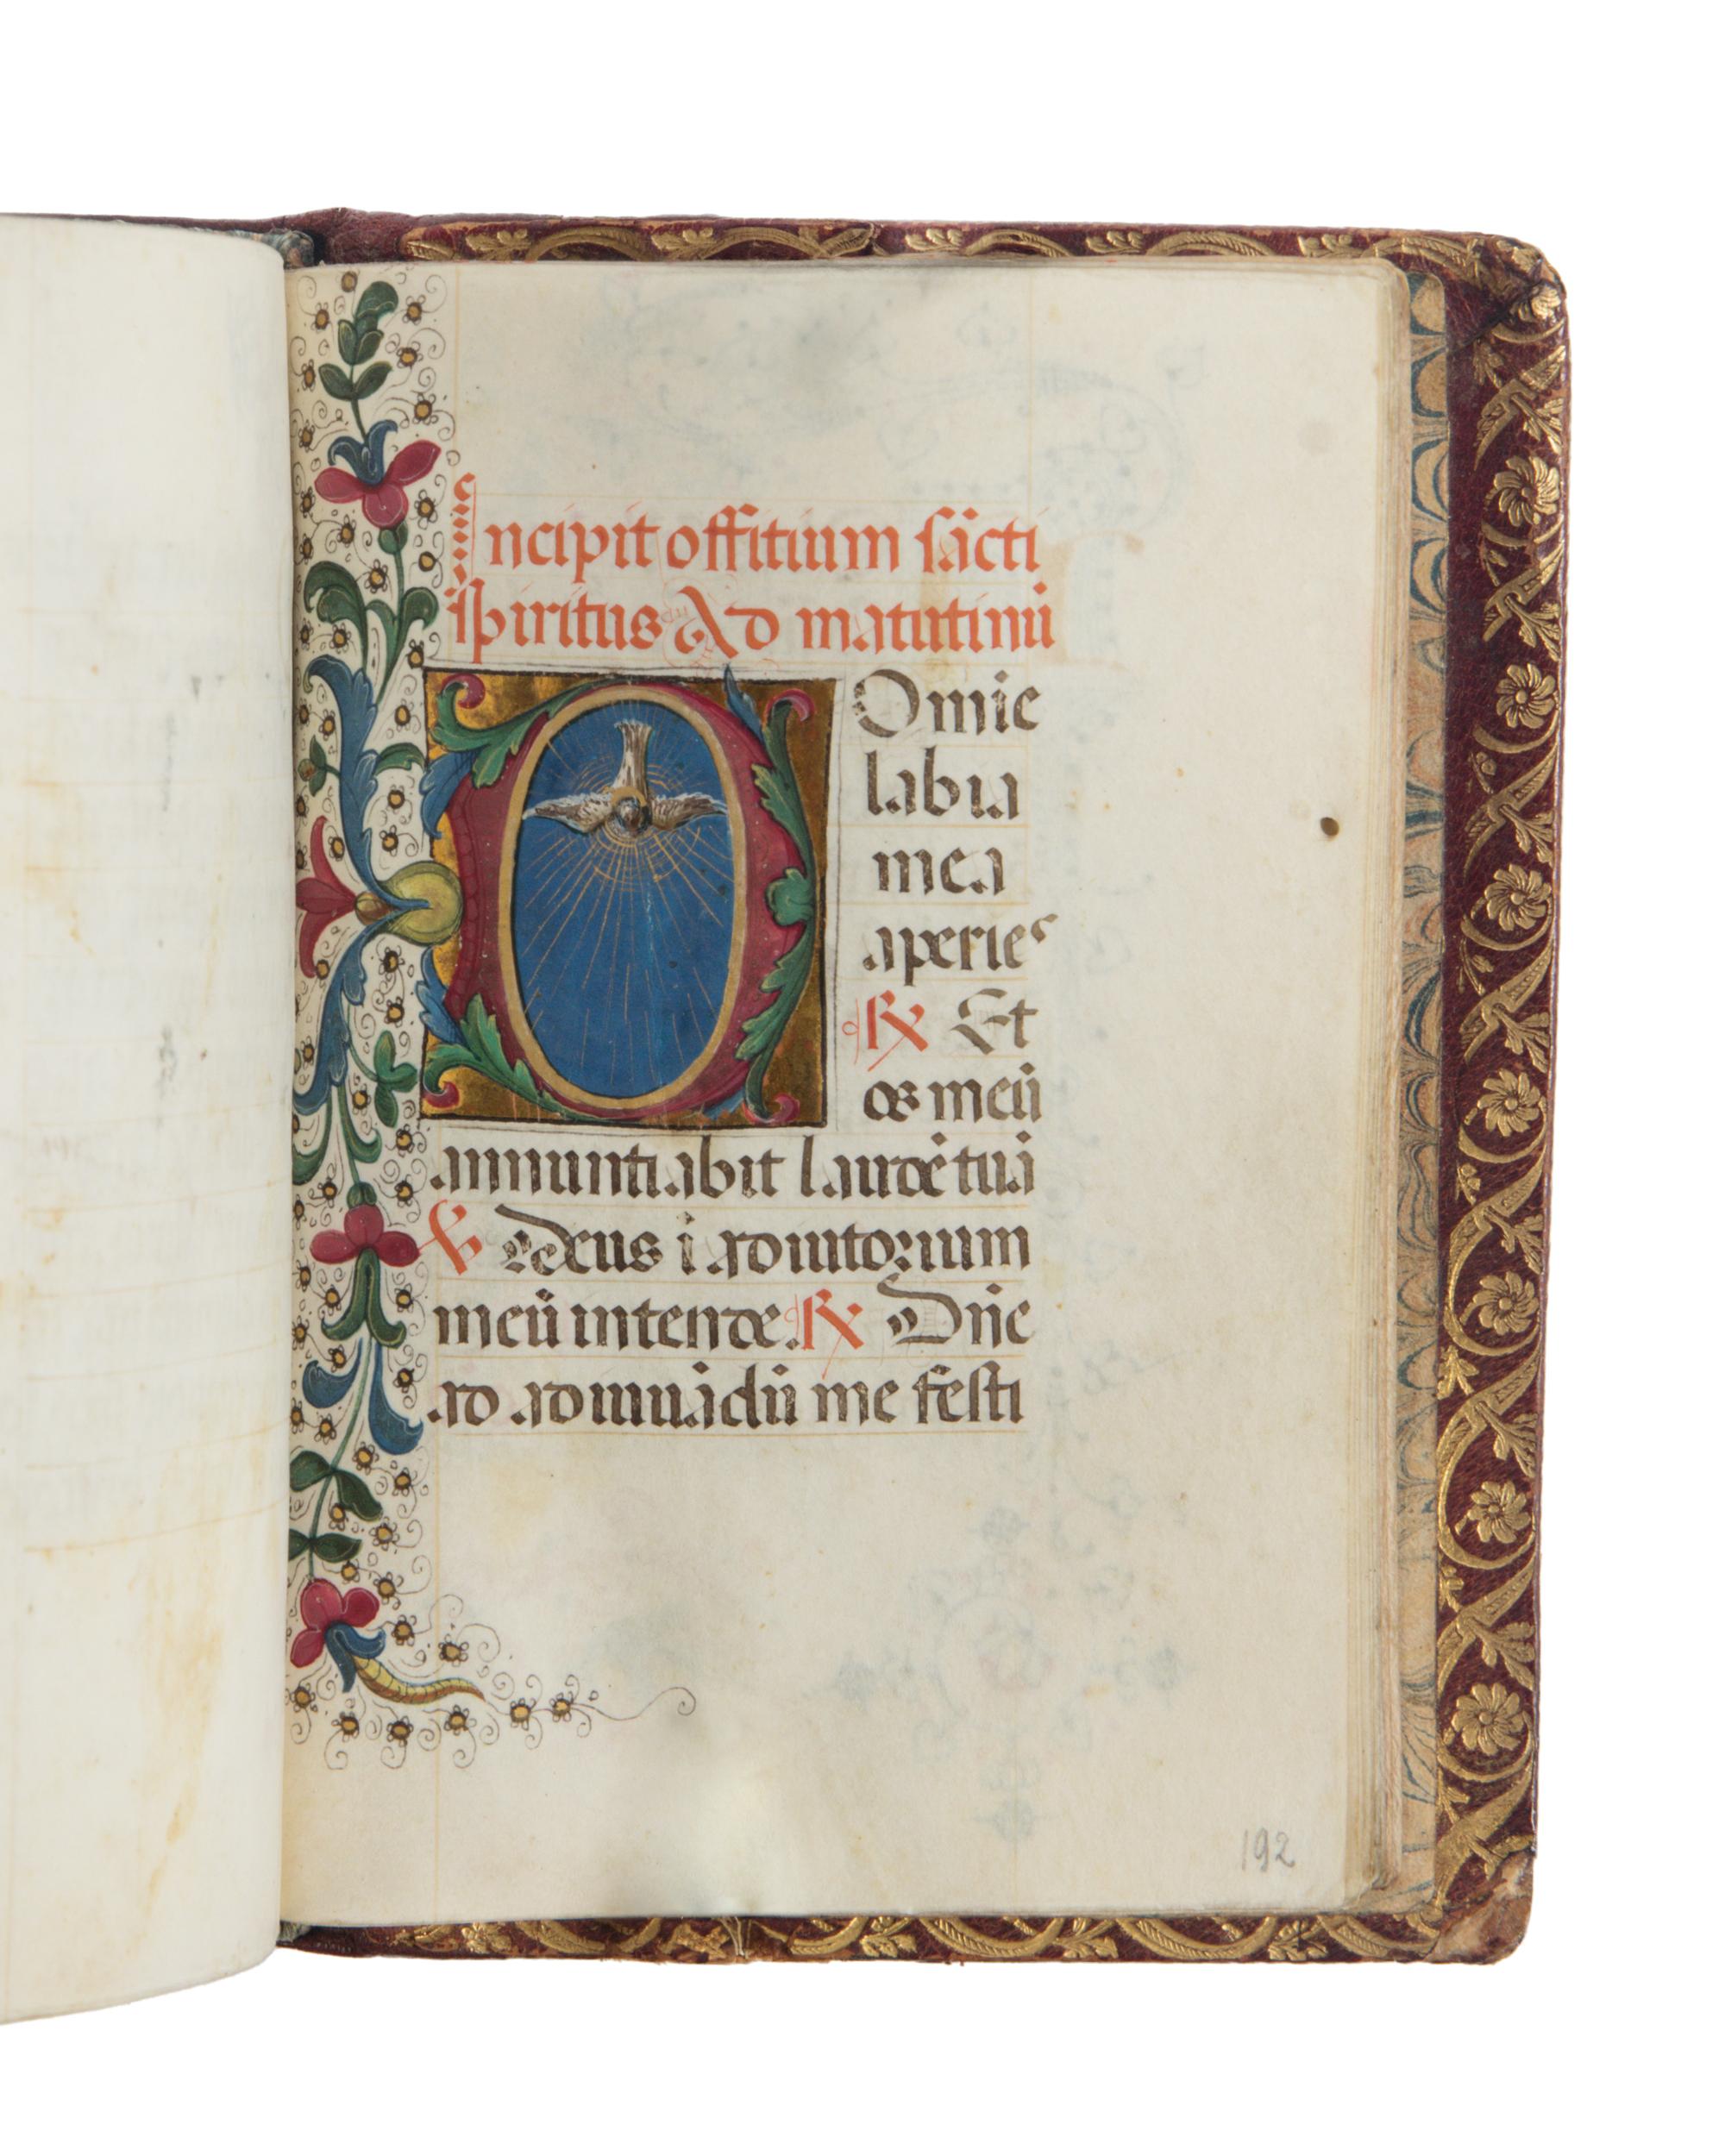 Incipit offitium sācti
spiritus Ad matutinū
DOmie
labia
mea
aperies
℟ Et
os meū
annuntiabit laudē tuā
℣ Deus ī adiutorium
meū intende. ℟ Dn̄e
ad adiuuādū me festi
192